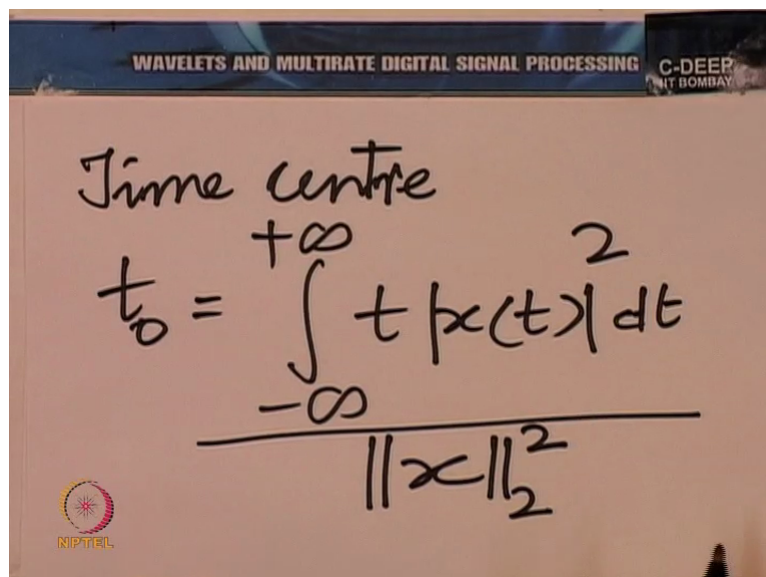 WAVELETS AND MULTIRATE DIGITAL SIGNAL PROCESSING
C-DEEP
IIT BOMBAY
Time centre
t₀ = ∫_{-∞}^{+∞} t |x(t)|² dt
‖x‖₂²
NPTEL